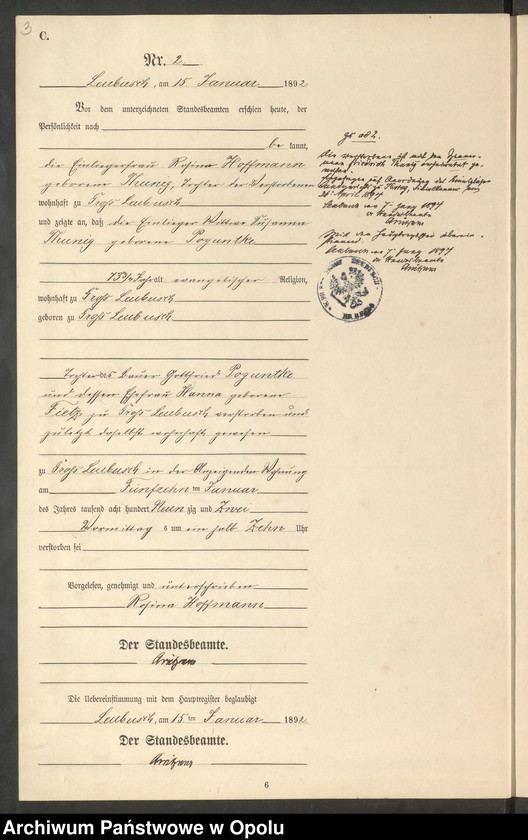 3
C.
Nr. 2
Leubusch, am 15. Januar 1892
Vor dem unterzeichneten Standesbeamten erschien heute, der
Persönlichkeit nach
be kannt,
die Einliegerfrau Rosina Hoffmann
geborene Thunig, Tochter der Verstorbenen
wohnhaft zu Groß Leubusch
und zeigte an, daß die Einlieger Wittwe Susanna
Thunig geborene Poguntke
75¾ Jahr alt evangelischer Religion,
wohnhaft zu Groß Leubusch
geboren zu Groß Leubusch
Tochter des Bauer Gottfried Poguntke
und dessen Ehefrau Hanna geborene
Fietz zu Groß Leubusch verstorben und
zuletzt daselbst wohnhaft gewesen
zu Groß Leubusch in der Wohnung
am Fünfzehn ten Januar
des Jahres tausend acht hundert Neun zig und Zwei
Vormittag s um ein halb Zehn Uhr
verstorben sei
Vorgelesen, genehmigt und unterschrieben
Rosina Hoffmann
Der Standesbeamte.
Die Uebereinstimmung mit dem Hauptregister beglaubigt
Leubusch, am 15 ten Januar 1892
Der Standesbeamte.
6
zu No 2.
Die Verstorbene ist mit dem
Friedrich Thunig verheirathet
auf Anordnung des Königlichen
Amtsgericht zu Brieg
April 1894
Leubusch 7. Juny 1894
Mit dem Hauptregister
Leubusch 7. Juny 1894
Archiwum Państwowe w Opolu